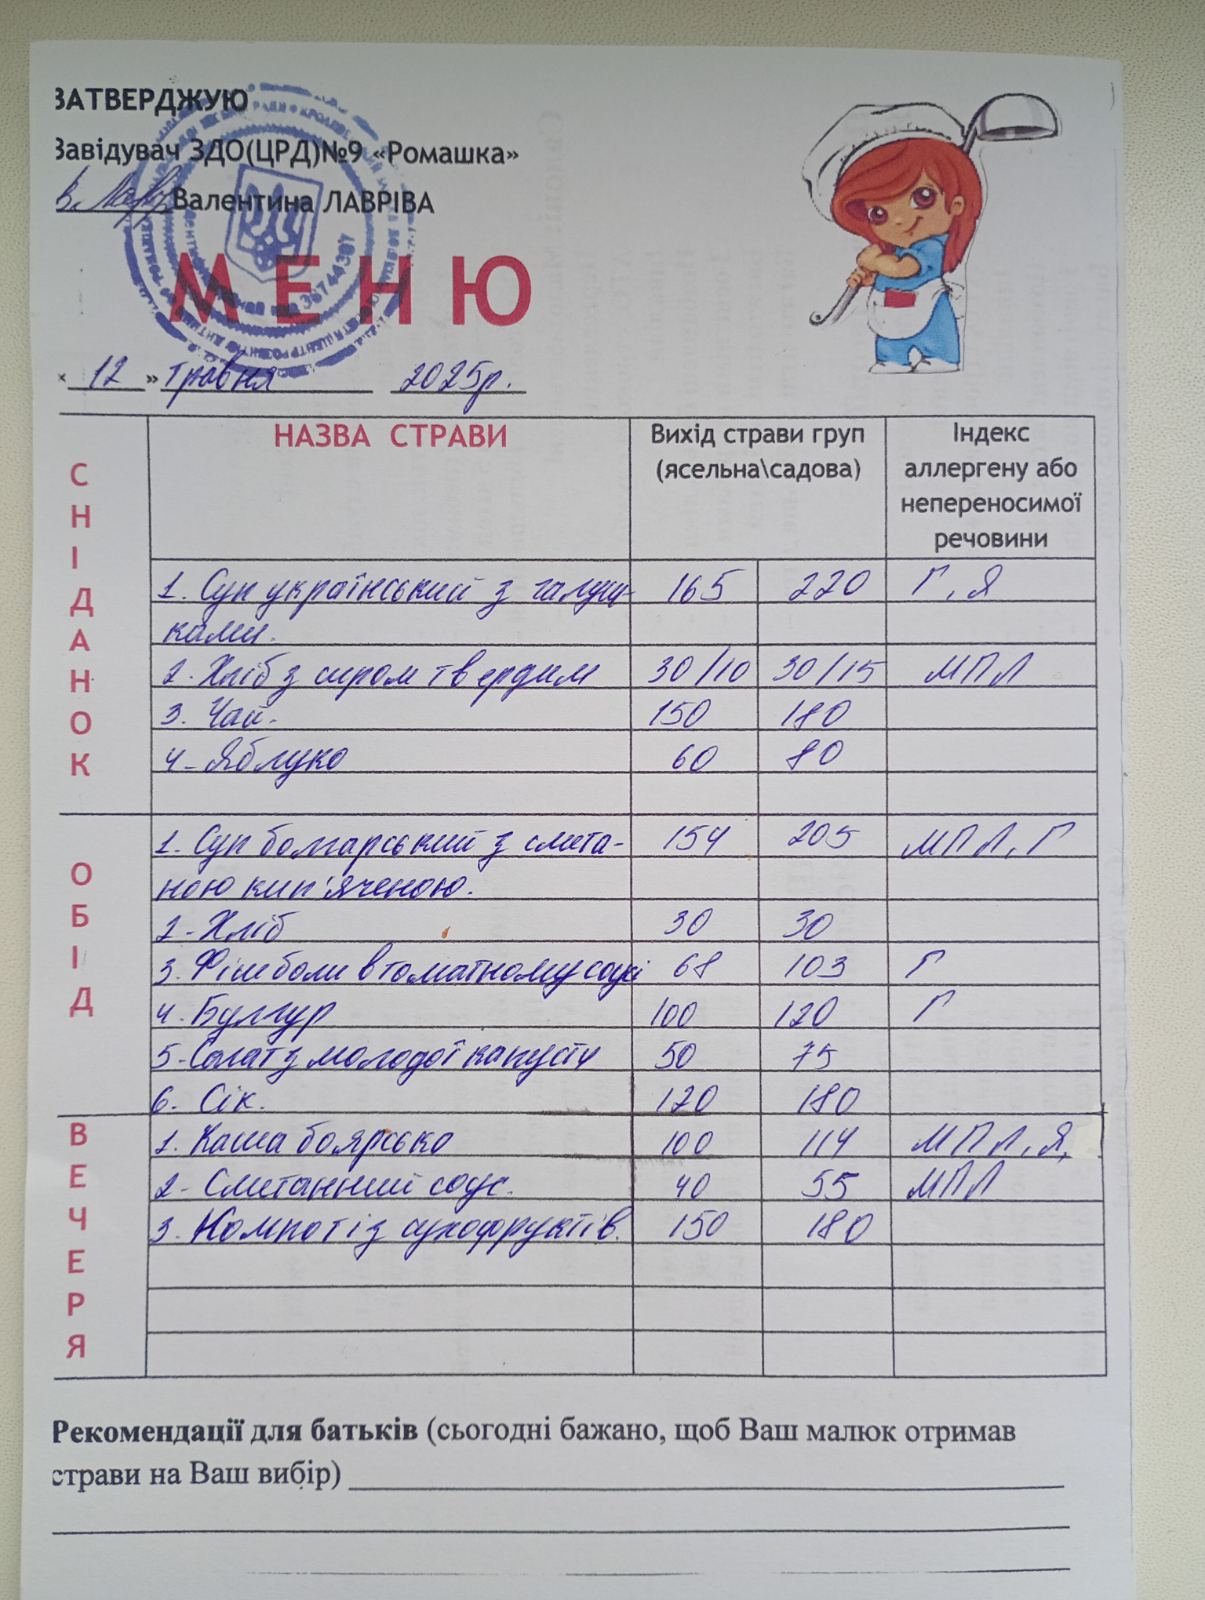 ЗАТВЕРДЖУЮ
Завідувач ЗДО(ЦРД)№9 «Ромашка»
Валентина ЛАВРІВА
36744387
МЕНЮ
« 12 » травня 2025р.
НАЗВА СТРАВИ
Вихід страви груп (ясельна\садова)
Індекс аллергену або непереносимої речовини
СНІДАНОК
1. Суп український з галуш- 165 220 Г, Я
ками.
2. Хліб з сиром твердим 30/10 30/15 МПЛ
3. Чай. 150 180
4. Яблуко 60 80
ОБІД
1. Суп болгарський з смета- 154 205 МПЛ, Г
ною кип'яченою.
2. Хліб 30 30
3. Фішболи в томатному соусі 68 103 Г
4. Булгур 100 120 Г
5. Салат з молодої капусти 50 75
6. Сік. 120 180
ВЕЧЕРЯ
1. Каша боярсько 100 114 МПЛ, Я,
2. Сметанний соус. 40 55 МПЛ
3. Компот із сухофруктів. 150 180
Рекомендації для батьків (сьогодні бажано, щоб Ваш малюк отримав
страви на Ваш вибір)